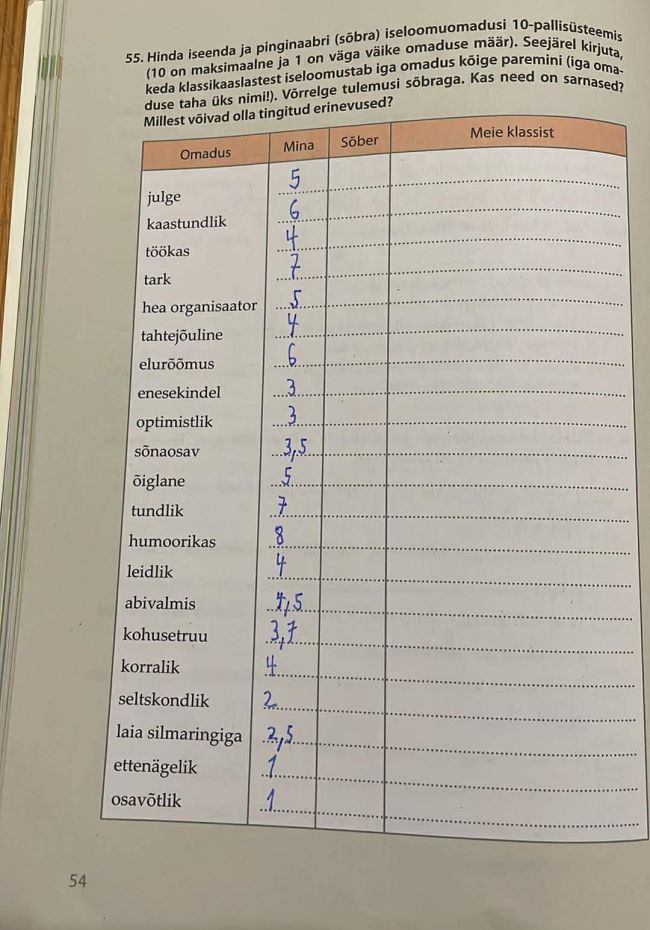 55. Hinda iseenda ja pinginaabri (sõbra) iseloomuomadusi 10-pallisüsteemis
(10 on maksimaalne ja 1 on väga väike omaduse määr). Seejärel kirjuta,
keda klassikaaslastest iseloomustab iga omadus kõige paremini (iga oma-
duse taha üks nimi!). Võrrelge tulemusi sõbraga. Kas need on sarnased?
Millest võivad olla tingitud erinevused?
Omadus Mina Sõber Meie klassist
julge 5
kaastundlik 6
töökas 4
tark 7
hea organisaator 5
tahtejõuline 4
elurõõmus 6
enesekindel 3
optimistlik 3
sõnaosav 3,5
õiglane 5
tundlik 7
humoorikas 8
leidlik 4
abivalmis 4,5
kohusetruu 3,7
korralik 4
seltskondlik 2
laia silmaringiga 2,5
ettenägelik 1
osavõtlik 1
54